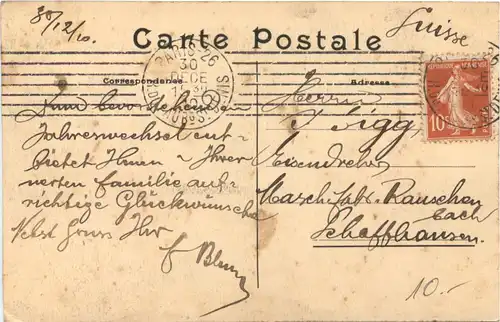 30/12/10.
Suisse
Carte Postale
Correspondance
Adresse
PARIS
30
DECE
10
Zum bevorstehenden
Jahreswechsel ent-
bietet Ihnen & Ihrer
werten Familie auf-
richtige Glückwünsche
Nebst Gruss Ihr
f Blum
Herrn
J Sigg
Eisendreher
Masch. Fabr. Rauschen
bach
Schaffhausen.
10.-